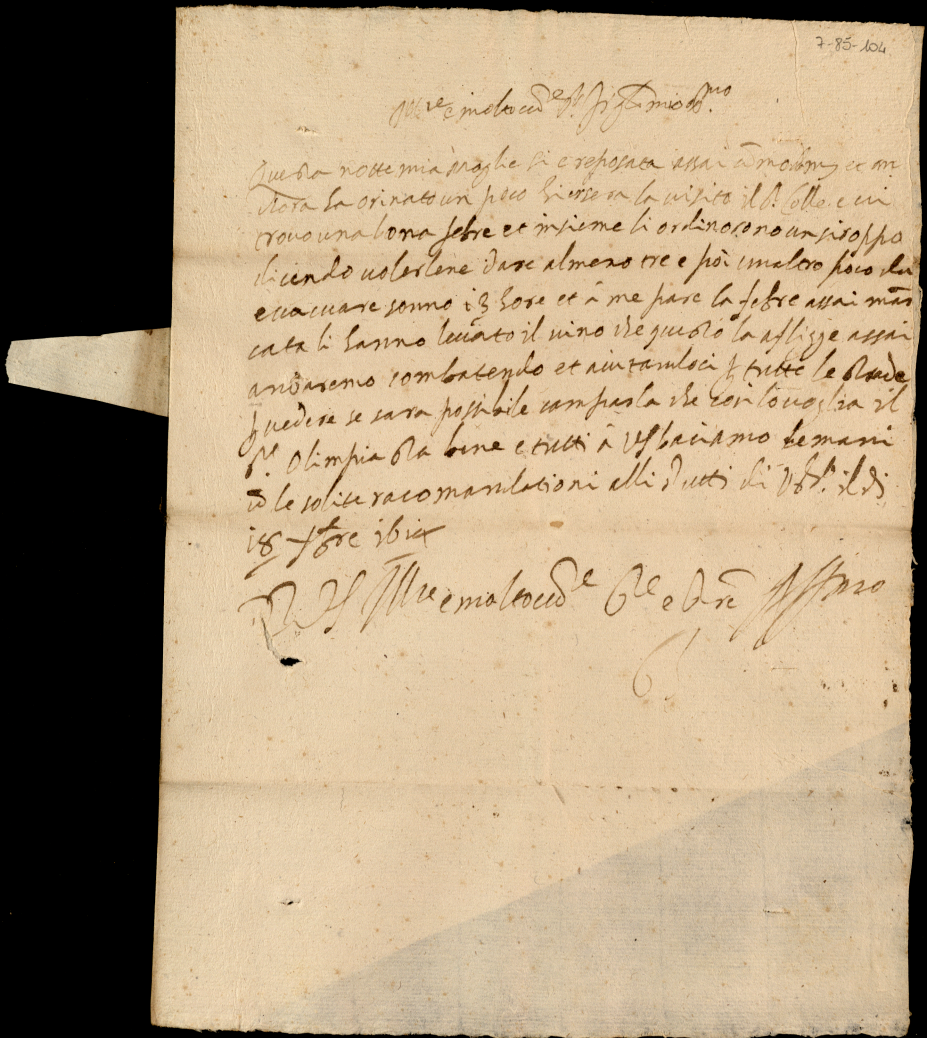 7-85-104
Ill.re e molto ecc.te S.r mio
Questa notte mia moglie si è reposata assai et an
cora ha orinato un poco hiersera la visitò il S.r Colle e vi
trovò una bona febre et insieme li ordinorono un siroppo
dicendo volerlene dare almeno tre e poi un altro poco da
evacuare sonno 13 hore et à me pare la febre assai man
cata li hanno levato il vino che questo la afligge assai
andaremo combatendo et aiutandoci p tutte le strade
p vedere se sara possibile camparla che così lo voglia il
S.re Olimpia sta bene e tutti à VS basciamo le mani
cō le solite racomandationi alli putti di il di
18 1614
D VS Ill.re e molto ecc.te